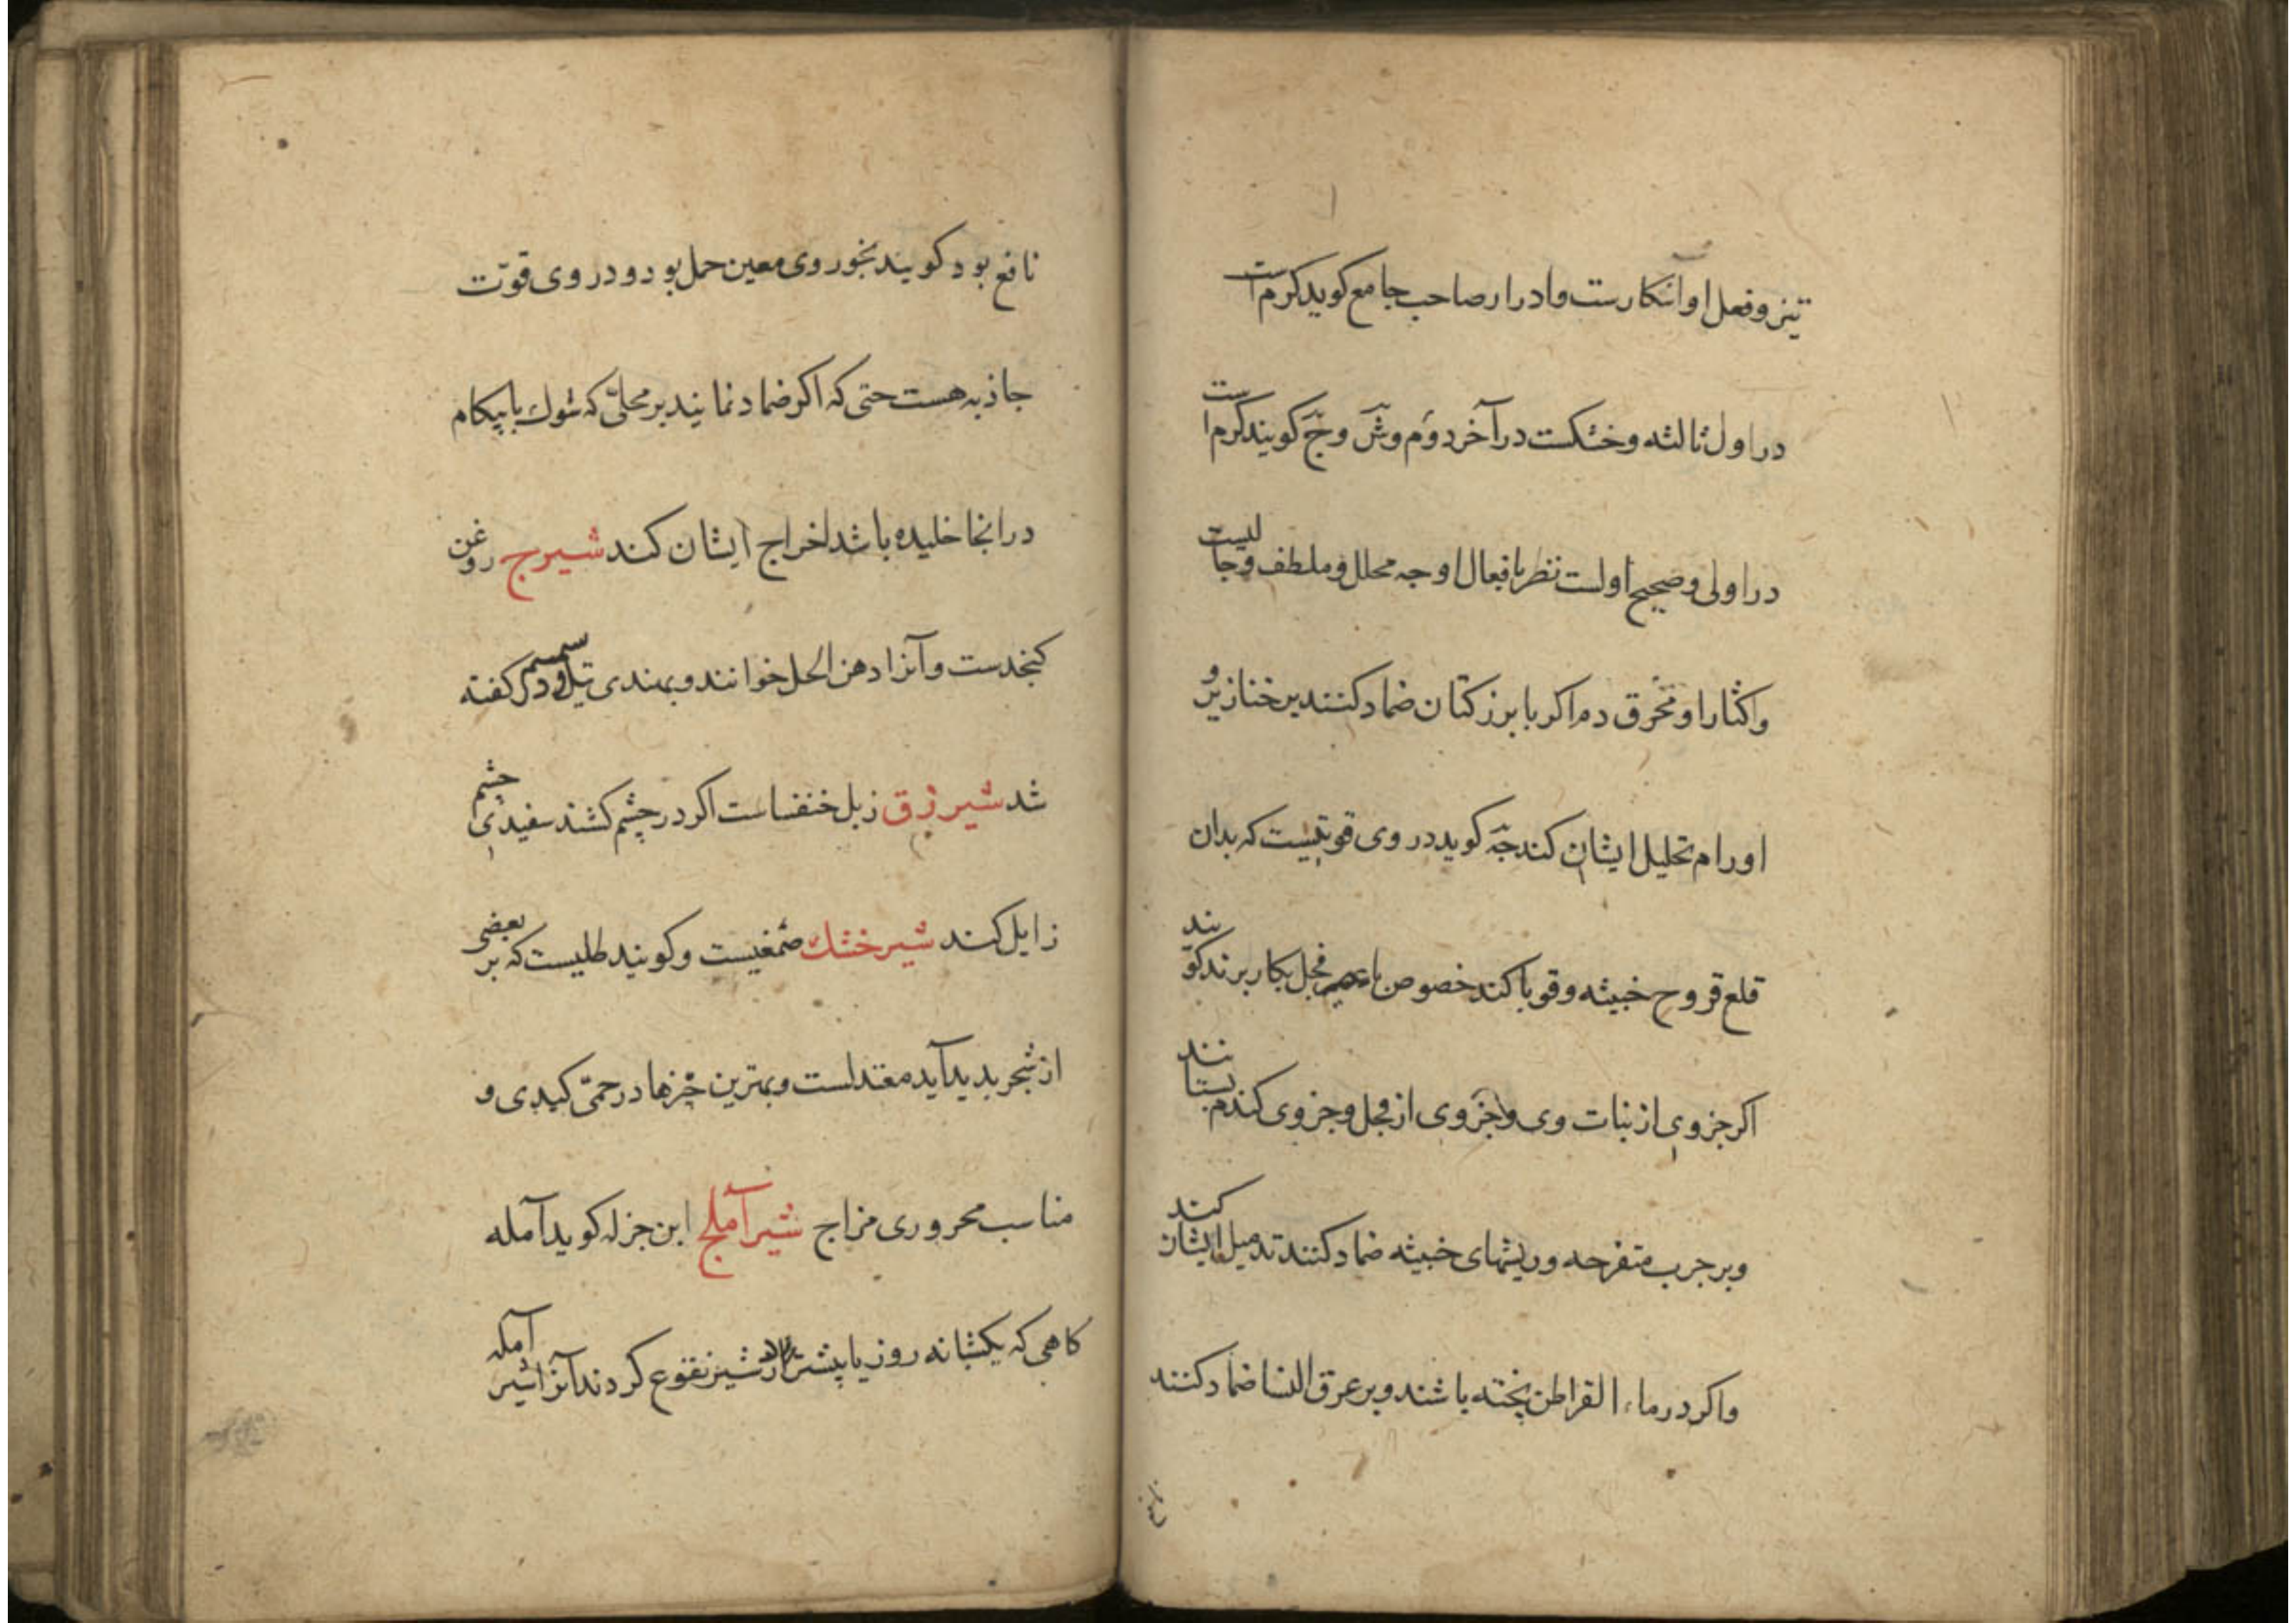 تیز و فعل او آشکارست و ادرار صاحب جامع کوید کرم است
در اول ثالثه و خشکست در آخر دوم و شّ و جّ کویند کرم است
در اولی و صحیح اولست نظر بافعال او جه محلل و ملطف و جالیست
و اکثار او محرق دم اکر با بزر کتان ضماد کنند بر خنازیر و
اورام تحلیل ایشان کند جّه کوید در وی قوتیست که بدان
قلع قروح خبیثه و قوبا کند خصوص با فجل بکار برند کویند
اکر جزوی از نبات وی و جزوی از فجل و جزوی کندم بستانند
و بر جرب متقرحه و ریشهای خبیثه ضماد کنند تدمیل ایشان کند
و اکر در ماء القراطن پخته باشند و بر عرق النسا ضماد کنند
نافع بود کویند بخور وی معین حمل بود و در وی قوّت
جاذبه هست حتی که اکر ضماد نمایند بر محلّی که شوك یا پیکام
در انجا خلیده باشد اخراج ایشان کند شیرج روغن
کنجدست و آنرا دهن الحل خوانند و بهندی تیل و در سمسم کفته
شد شیرزق زبل خنفساست اکر در چشم کشند سفیدی چشم
زایل کند شیرخشك صمغیست و کویند طلیست که بر بعضی
از شجر بدید آید معتدلست و بهترین چزها در حمّی کبدی و
مناسب محروری مزاج شیرآملج ابن جزله کوید آمله
کاهی که یکشبانه روز یا پیشتر در شیر نقوع کردند آنرا شیر آمله